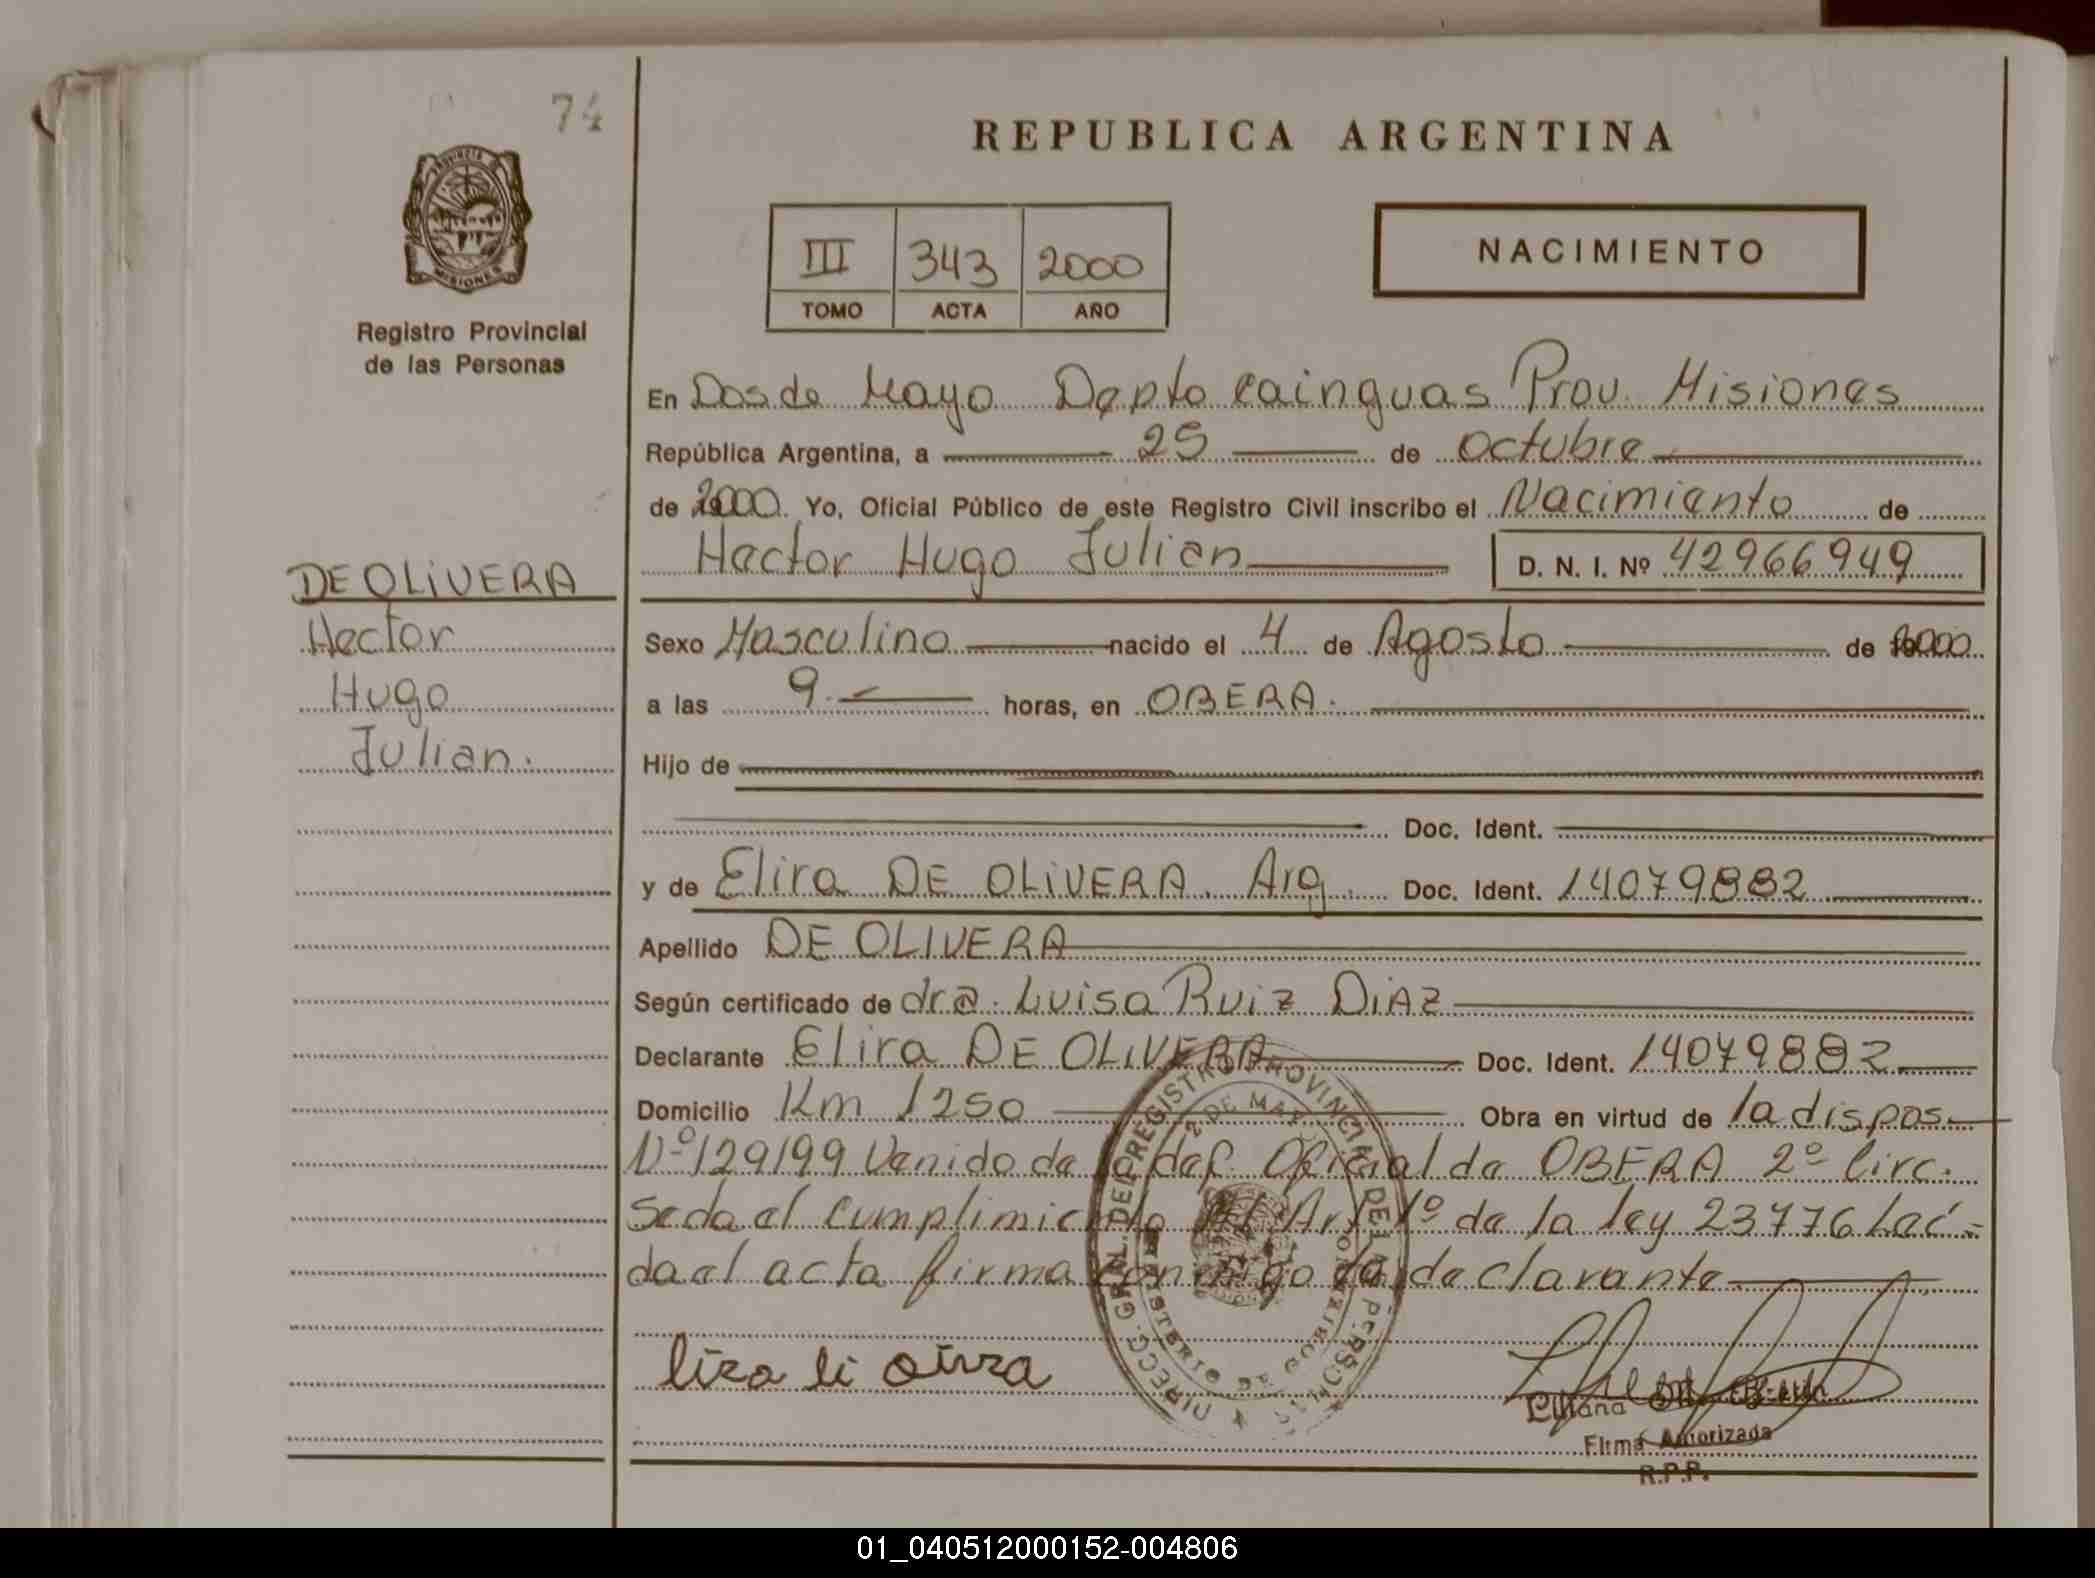 74
REPUBLICA ARGENTINA
PROVINCIA D
MISIONES
Registro Provincial
de las Personas
III 343 2000
TOMO ACTA AÑO
NACIMIENTO
En Dos de Mayo Depto Cainguas Prov. Misiones
República Argentina, a 25 de Octubre
de 2000 Yo, Oficial Público de este Registro Civil inscribo el Nacimiento de
Hector Hugo Julian D. N. I. Nº 42966949
DE OLIVERA
Hector
Hugo
Julian.
Sexo Masculino nacido el 4 de Agosto de 2000
a las 9. horas, en OBERA.
Hijo de
Doc. Ident.
y de Elira DE OLIVERA. Arg. Doc. Ident. 14079882
Apellido DE OLIVERA
Según certificado de dra. Luisa Ruiz DiAZ
Declarante Elira DE OLIVERA Doc. Ident. 14079882
Domicilio Km 1250 Obra en virtud de la dispos
Nº 129199 Venido de la def. Oficial de OBERA 2º Circ.
Seda el Cumplimiento del Art 1º de la ley 23776 Leí-
da el acta firma conmigo la declarante
DIRECC. GRAL. DEL REGISTRO PROVINCIAL DE LAS PERSONAS
2 DE MAYO
MINISTERIO DE GOBIERNO
Liliana
Firma Autorizada
R.P.P.
01_040512000152-004806